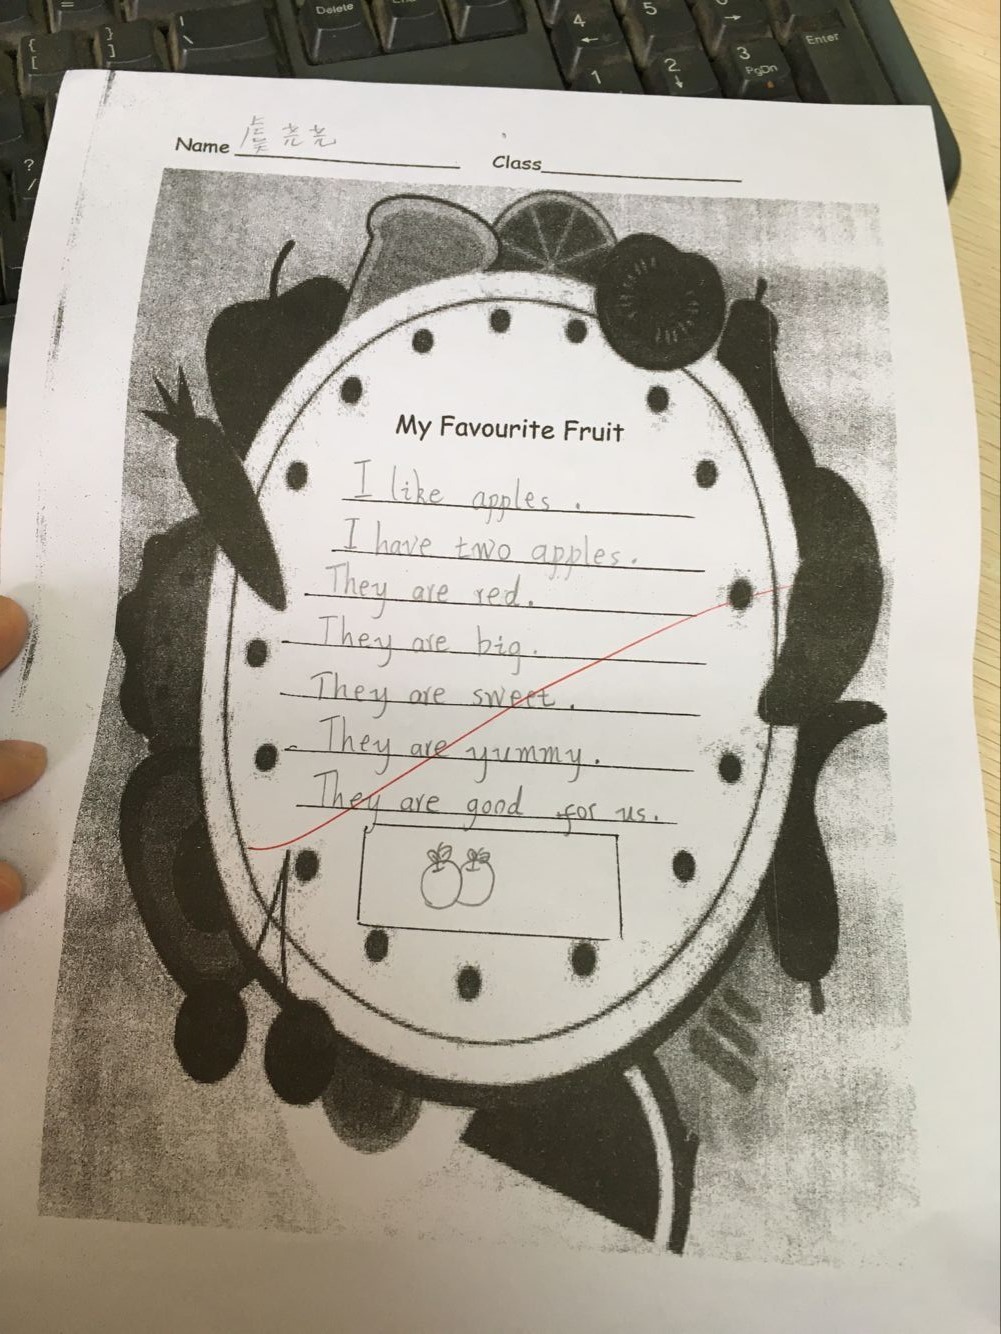 Delete
4
5
Enter
1
2
3
PgDn
?
/
Name
Class
My Favourite Fruit
I like apples.
I have two apples.
They are red.
They are big.
They are sweet.
They are yummy.
They are good for us.